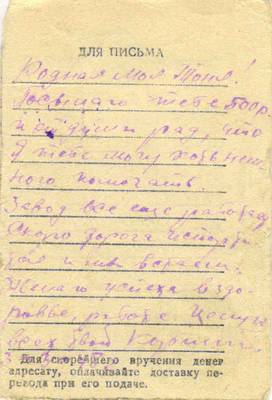 ДЛЯ ПИСЬМА
Родная моя Тоня!
Посылаю тебе
рад, что
я тебе могу хоть нем-
ного помогать.
Завод все еще работает
Скоро дорога испорти
Желаю успеха в здо-
ровье, работе. Целую
всех твой
Для скорейшего вручения денег
адресату, оплачивайте доставку пе-
ревода при его подаче.